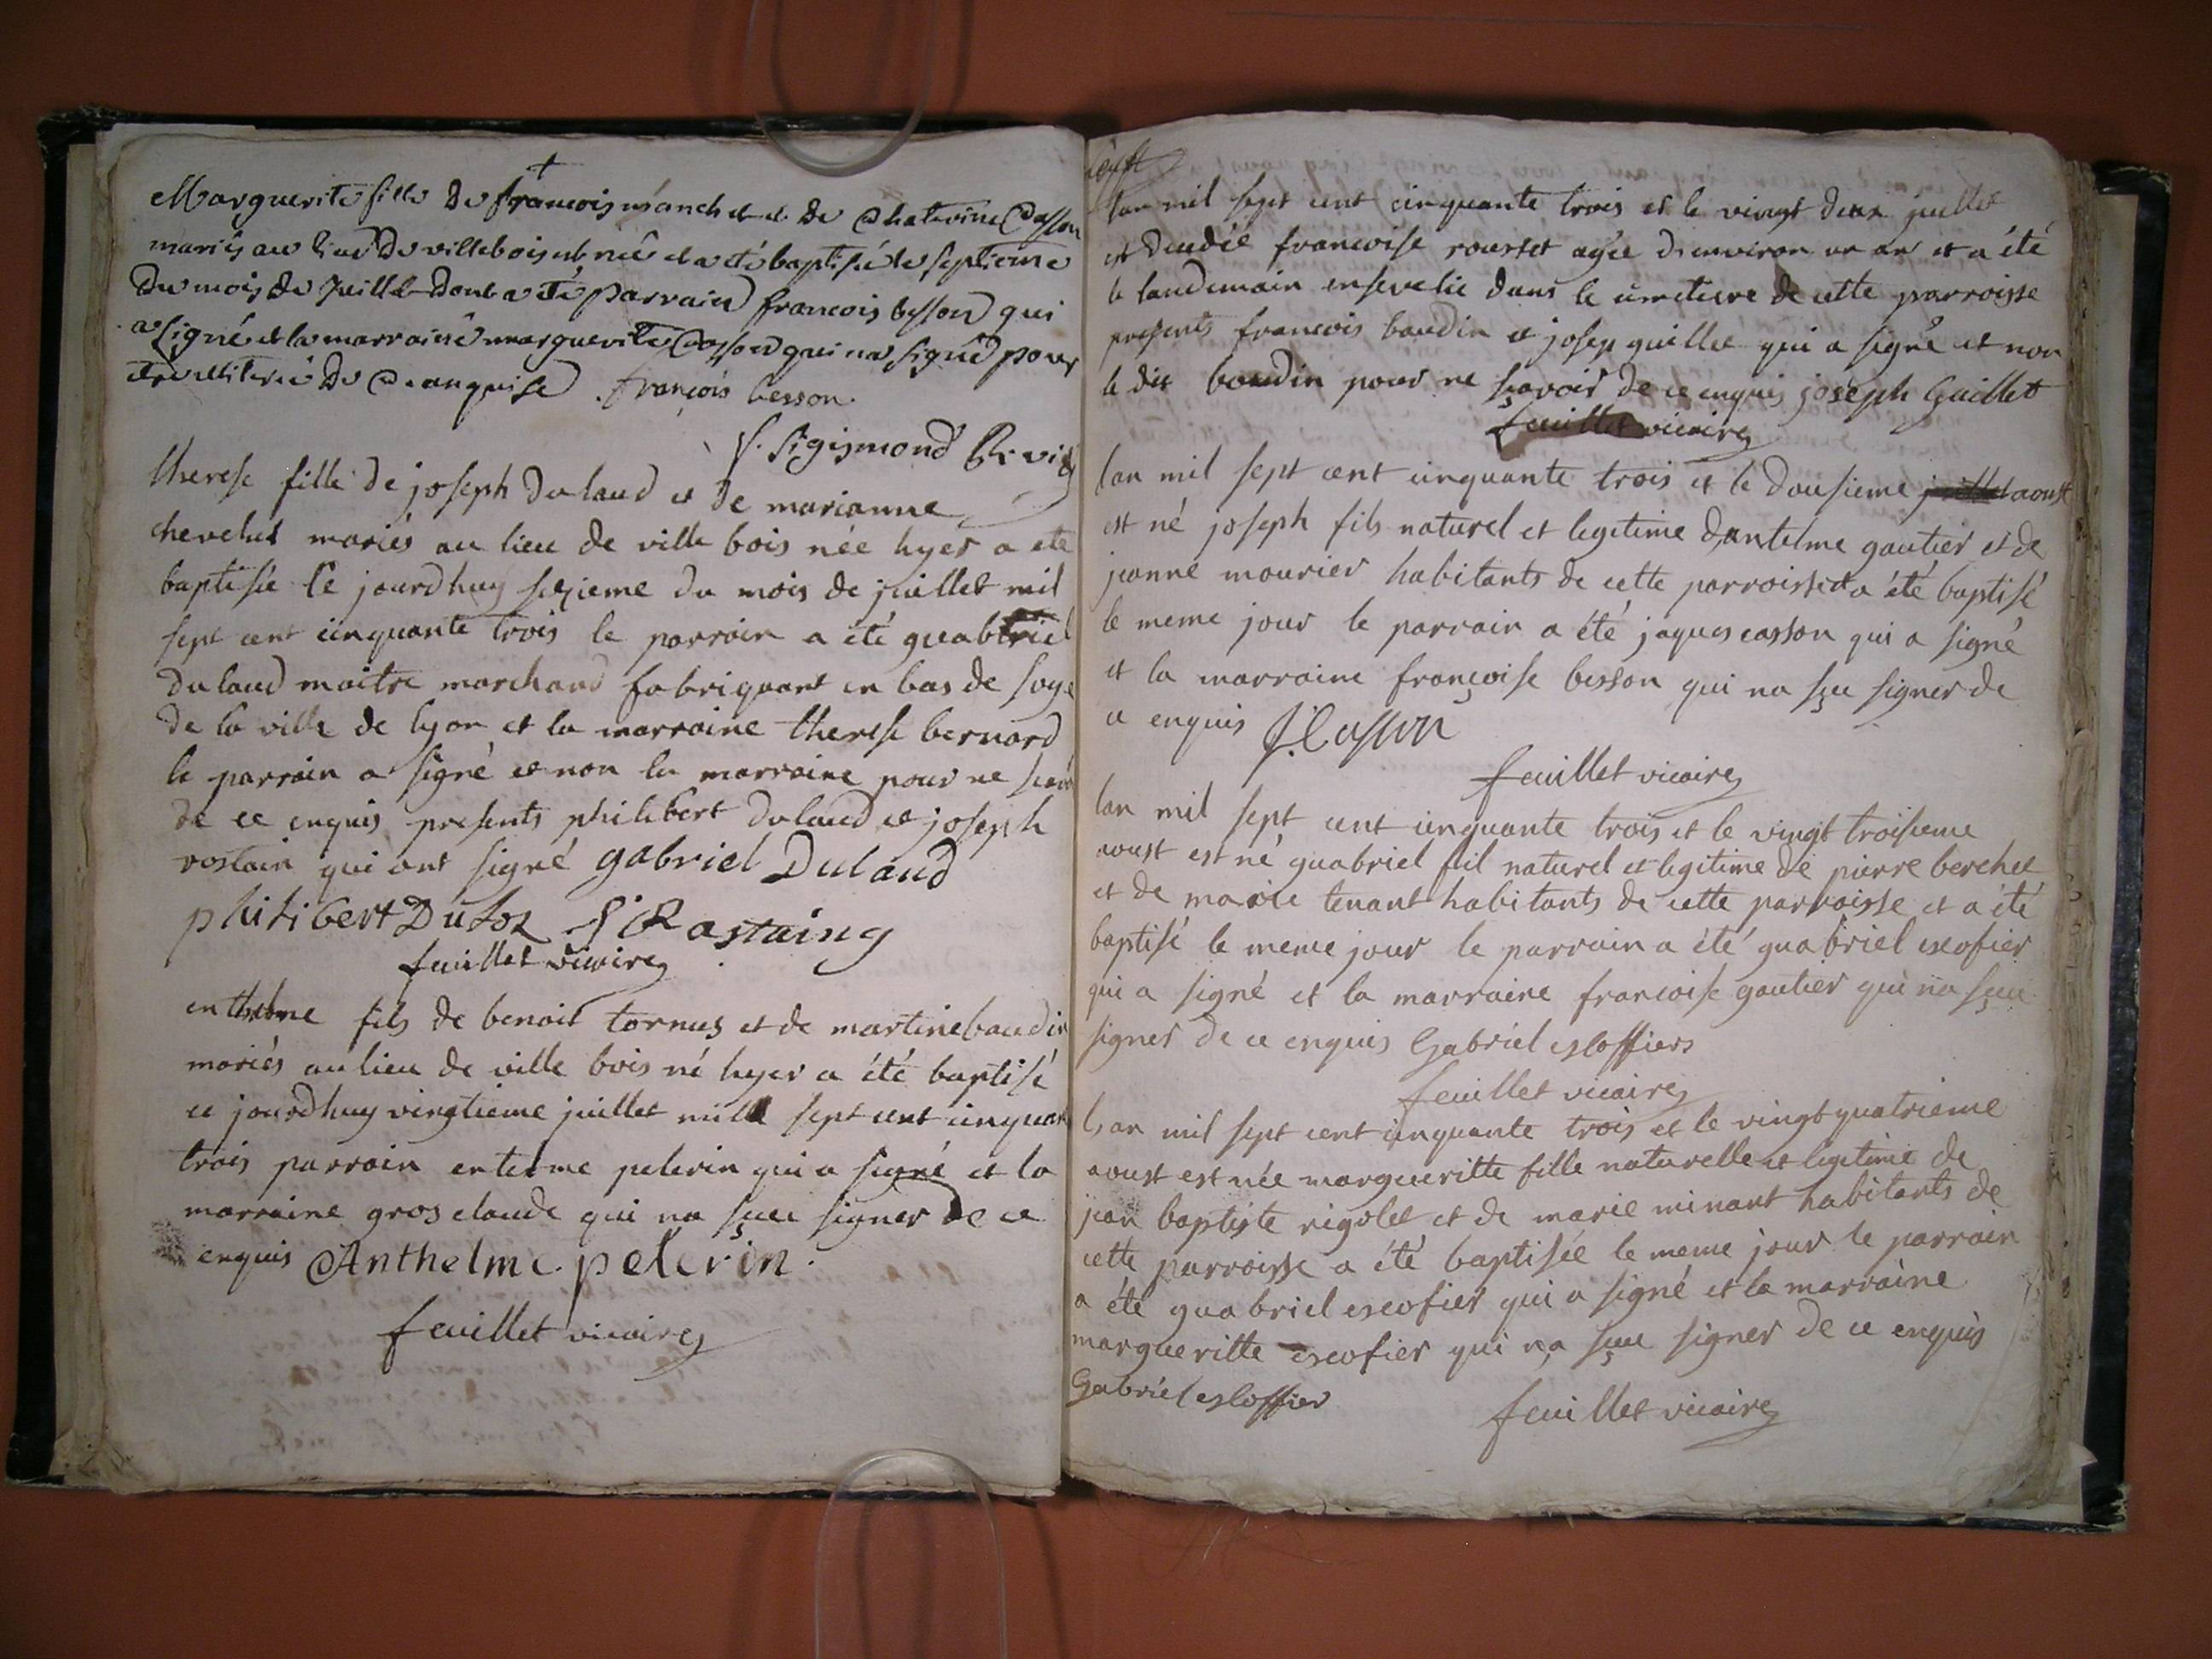 Marguerite fille de francois manchet et de Chaterine Casson
mariés au lieu de villebois est née et a été baptisée le septieme
du mois de Juillet dont a été parrain francois besson qui
a signé et la marraine marguerite Casson qui na signé pour
etre illiterée de ce anquise . françois besson.
f. Sigismond
therese fille de joseph dulaud et de marianne
chevelut mariés au lieu de ville bois née hyer a ete
baptisée ce jourdhuy sezieme du mois de juillet mil
sept cent cinquante trois le parrain a été guabriel
dulaud maitre marchand fabriquant en bas de soye
de la ville de lyon et la marraine therese bernard
le parrain a signé et non la marraine pour ne
de ce enquis presents philibert dulaud et joseph
rostain qui ont signé gabriel Dulaud
philibert Duloz J Rostaing
feuillet vicaire
enthelme fils de benoit tornus et de martine baudin
mariés au lieu de ville bois né hyer a été baptisé
ce jourdhuy vingtieme juillet mille sept cent cinquan
trois parrain entelme pelerin qui a signé et la
marraine gros claude qui na sçeu signer de ce
enquis Anthelme . pelerin .
feuillet vicaire
lan mil sept cent cinquante trois et le vingt deux juillet
est decedée francoise rousset agée denviron un an et a été
le landemain ensevelie dans le cimetiere de cette parroisse
presents francois baudin et josep guillet qui a signé et non
le dit baudin pour ne sçavoir de ce enquis joseph Guillet
feuillet vicaire
lan mil sept cent cinquante trois et le dousieme juillet aoust
est né joseph fils naturel et legitime dantelme gautier et de
jeanne mourier habitants de cette parroisse et a été baptisé
le meme jour le parrain a été jaques casson qui a signé
et la marraine françoise besson qui na sçeu signer de
ce enquis J. Casson
feuillet vicaire
lan mil sept cent cinquante trois et le vingt troisieme
aoust est né guabriel fil naturel et legitime de pierre berchet
et de marie tenant habitants de cette parroisse et a été
baptisé le meme jour le parrain a été guabriel escofier
qui a signé et la marraine francoise gautier qui na sçeu
signer de ce enquis Gabriel escoffiers
feuillet vicaire
lan mil sept cent cinquante trois et le vingt quatrieme
aoust est née margueritte fille naturelle et legitime de
jean baptiste rigolet et de marie minant habitants de
cette parroisse a été baptisée le meme jour le parrain
a été guabriel escofier qui a signé et la marraine
margueritte escofier qui na sçeu signer de ce enquis
Gabriel escoffier
feuillet vicaire